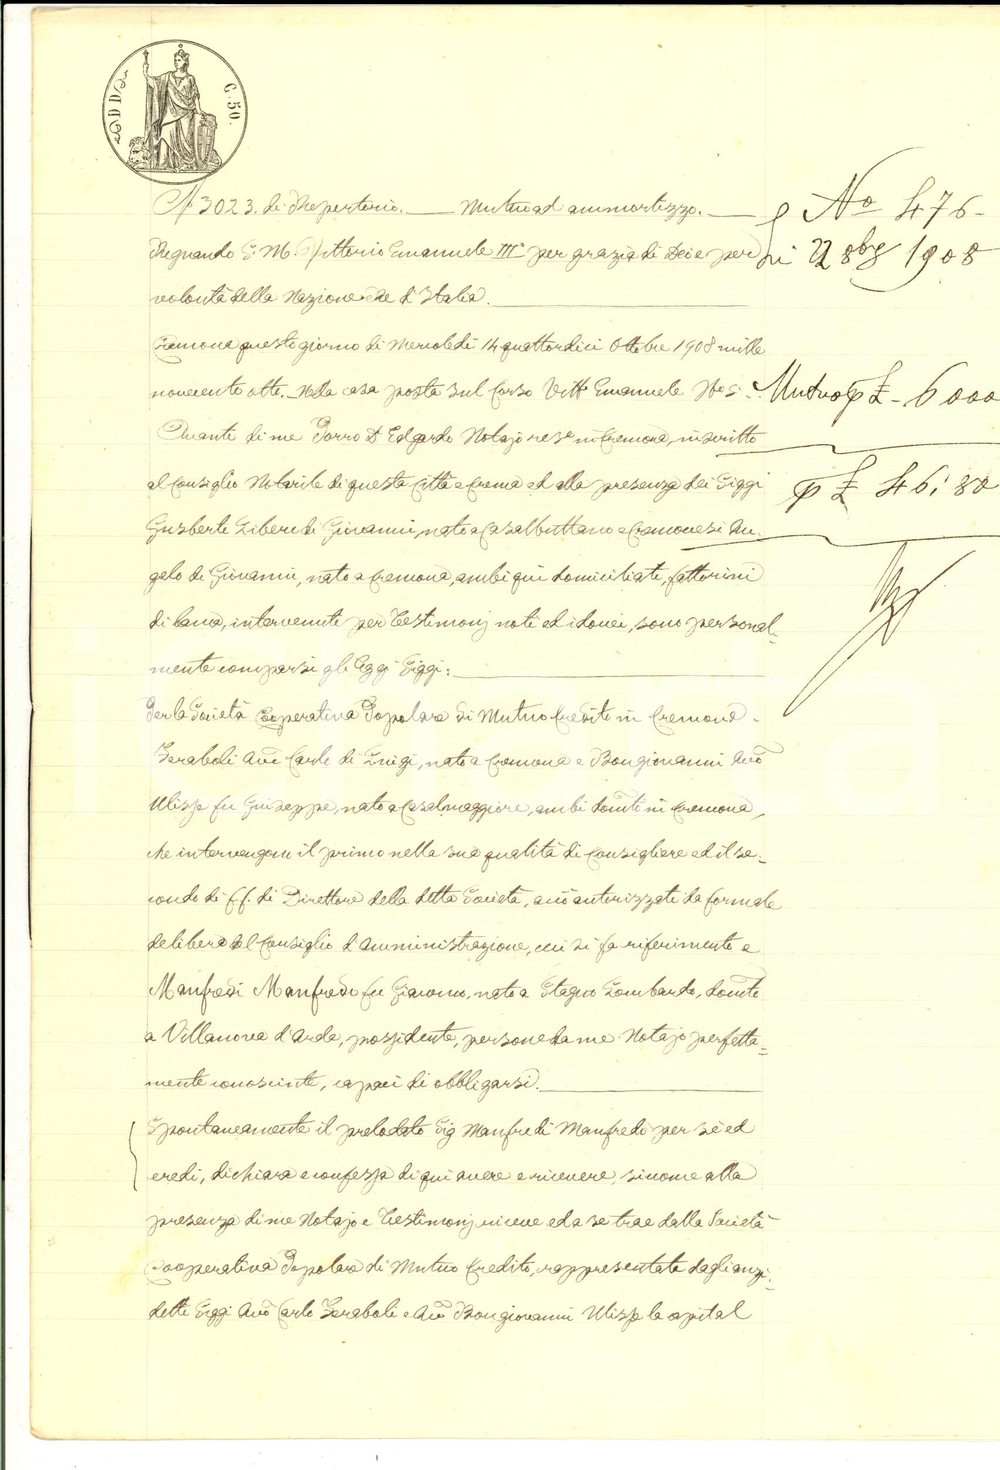 C. 50.
N 3023. di Repertorio. — Mutuo ad ammortizzo. —
No 476
Regnando S. M. Vittorio Emanuele III per grazia di Dio e per
li 22 8bre 1908
volontà della Nazione Re d'Italia.
Cremona questo giorno di Mercoledì 14 quattordici Ottobre 1908 mille
novecento otto. Nella casa posta sul Corso Vitt Emanuele
Mutuo p £ - 6000
Avanti di me Porro Dr Edgardo Notajo res.e in Cremona, inscritto
al Consiglio Notarile di questa Città e Crema ed alla presenza dei Siggi
p £ 46; 80
Liberi di Giovanni, nato a Casalbuttano e Cremonesi An-
gelo di Giovanni, nato a Cremona, ambi qui domiciliati, fattorini
di banca, intervenuti per Testimonj noti ed idonei, sono personal-
mente comparsi gli Eggi Siggi:
Per la Società Cooperativa Popolare di Mutuo Credito in Cremona.
Avv Carlo di Luigi, nato a Cremona e Bongiovanni Avv
Ulisse fu Giuseppe, nato a Casalmaggiore, ambi domiti in Cremona,
che intervengono il primo nella sua qualità di Consigliere ed il se-
condo di ff. di Direttore della detta Società, a ciò autorizzati da formale
delibera del Consiglio d'Amministrazione, cui si fa riferimento e
Manfredi Manfredo fu Giacomo, nato a Stagno Lombardo, domito
a Villanova d'Arda, possidente, persone da me Notajo perfetta-
mente conosciute, capaci di obbligarsi.
Spontaneamente il prelodato Sig Manfredi Manfredo per sé ed
eredi, dichiara e confessa di qui avere e ricevere, siccome alla
presenza di me Notajo e Testimonj riceve ed a se trae dalla Società
Cooperativa Popolare di Mutuo Credito, rappresentata dagli anzi-
detti Siggi Avv Carlo e Avv Bongiovanni Ulisse la capital